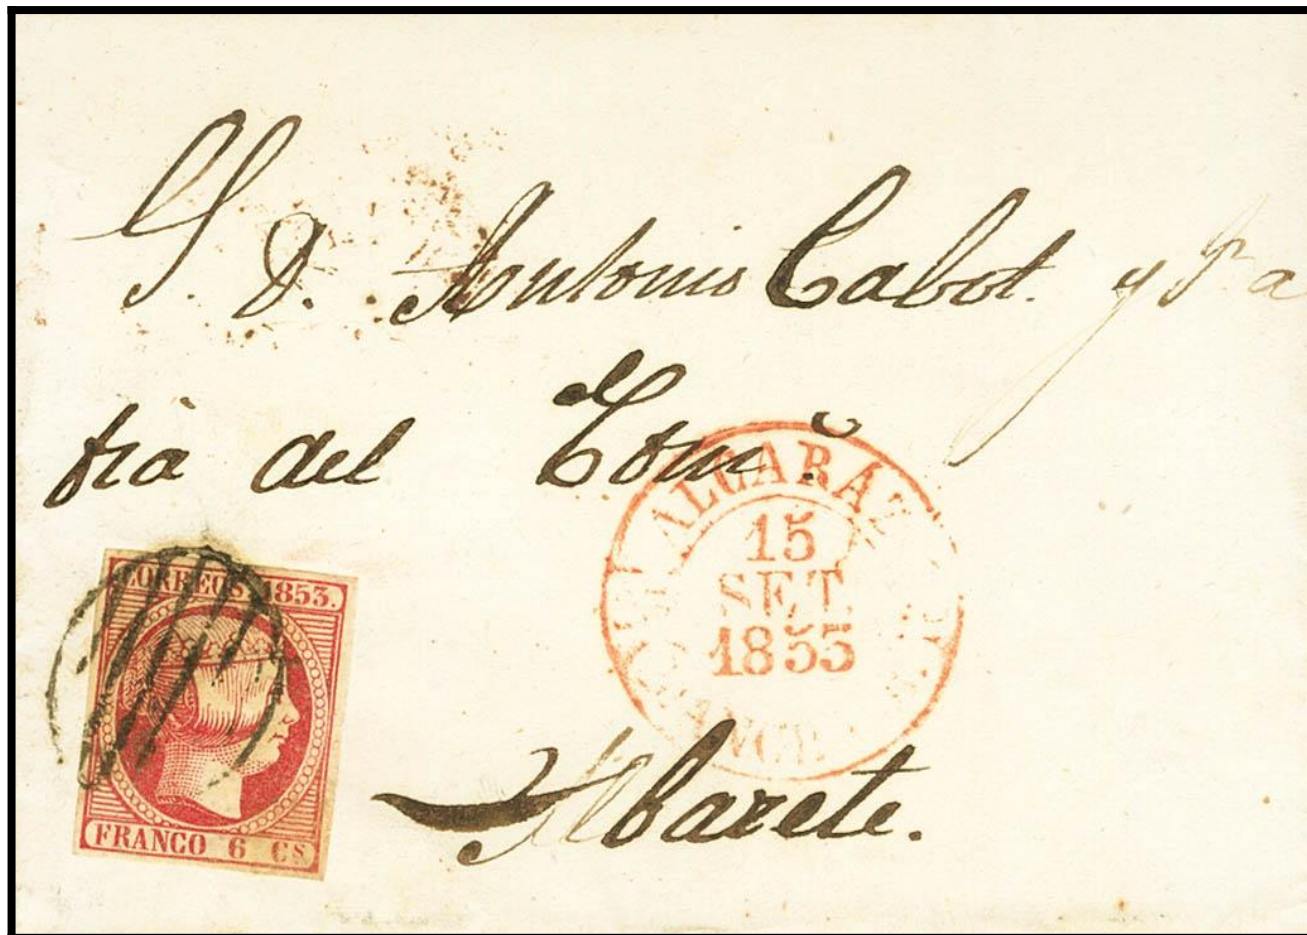 S. D. Antonio Cabot. y
del
ALCARAZ
15
SET
1853
CORREOS 1853.
FRANCO 6 CS
Albazete.